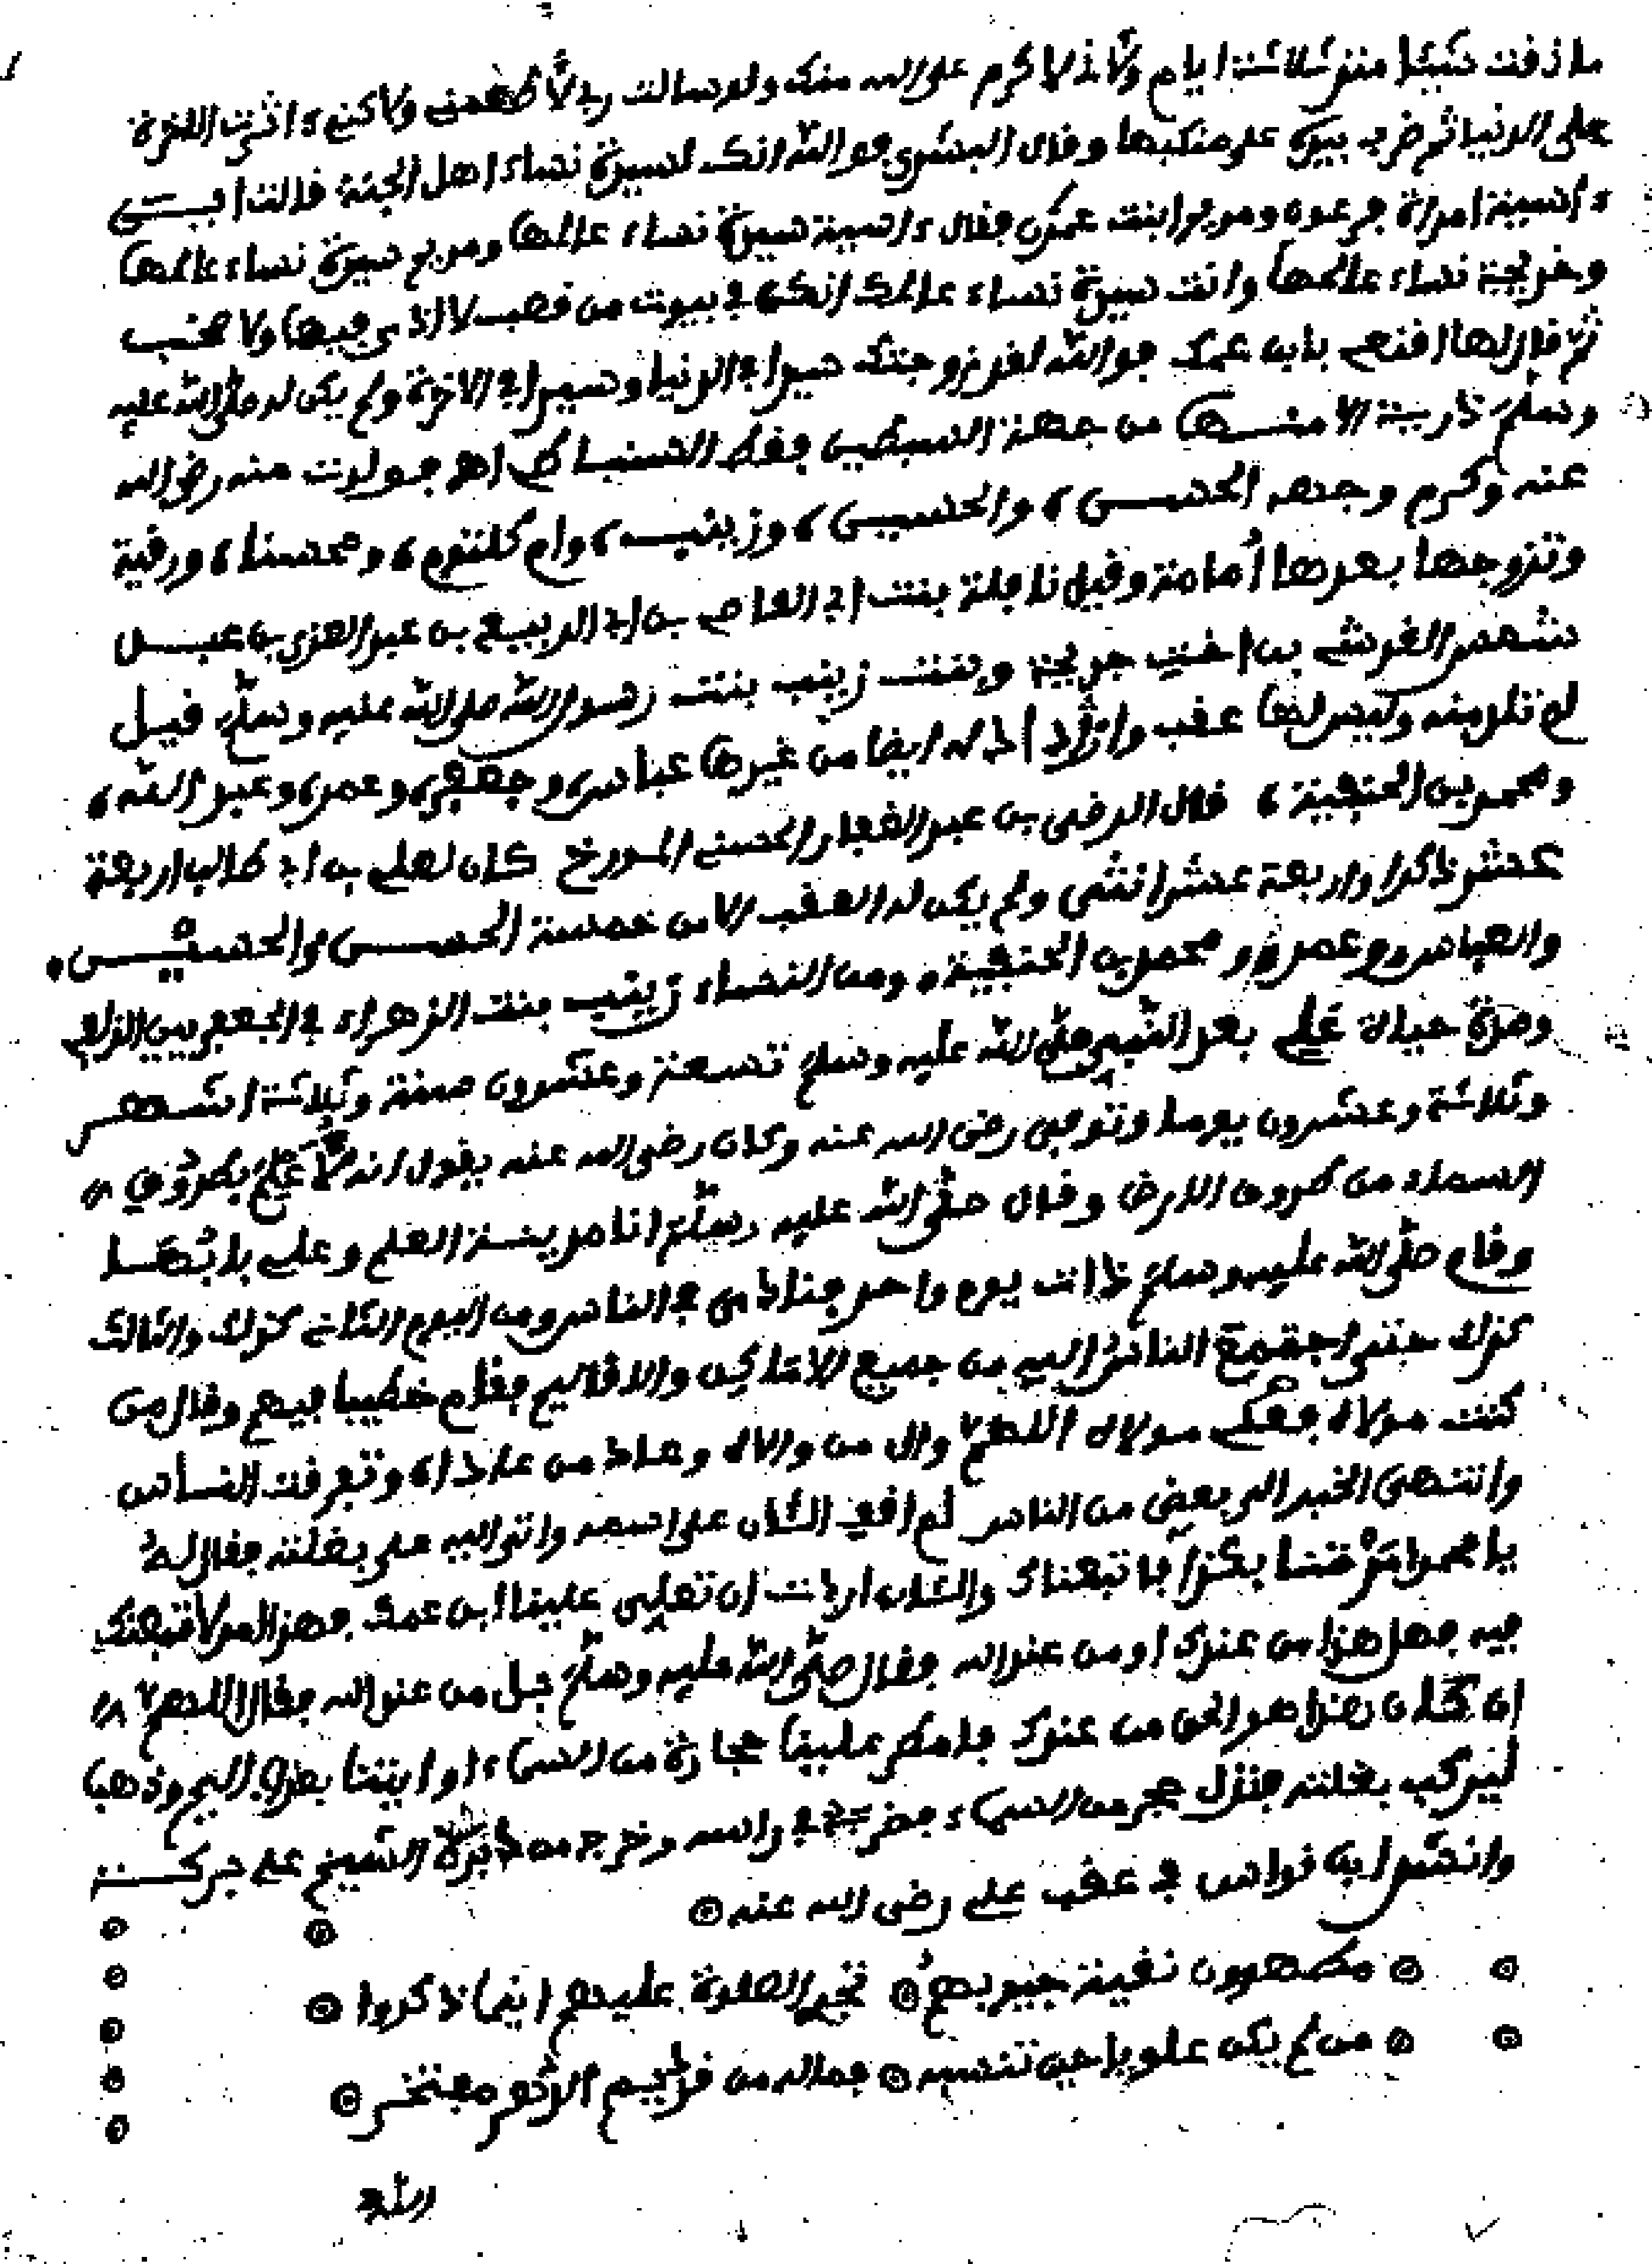 ما ذقت شيئا منذ ثلاثة ايام ولانا لاكرم على الله منك ولو سالت ربي لاطعمني ولاكني ءاثرت الاخرة
على الدنيا ثم ضرب بيده على منكبها وقال ابشري فوالله انك لسيدة نساء اهل الجنة فالت اين
ءاسية امراة فرعون ومريم ابنت عمران فقال ءاسية سيدة نساء عالمها ومريم سيدة نساء عالمها
وخديجة نساء عالمها وانت سيدة نساء عالمك انكن في بيوت من قصب لا اذى فيها ولا صخب
ثم قال لها اقنعي بابن عمك فوالله لقد زوجتك سيدا في الدنيا وسيدا في الاخرة ولم يكن له صلى الله عليه
وسلم ذرية الا منها من جهة السبطين فقط فولدت منه رضي الله
عنه وكرم وجهه الحسن، والحسين، وزينب، وام كلثوم، ومحسنا، ورقية
وتزوجها بعدها أمامة وقيل بنت ابي العاص بن ابي الربيع بن عبد العزى بن عبد
شمس القرشي بن اخت خديجة وبنت زينب بنت رسول الله صلى الله عليه وسلم قيل
لم تلد منه وليس لها عقب وازداد له ايضا من غيرها عباس، وجعفر، وعمر، وعبد الله،
ومحمد بن الحنفية، قال بن عبد الغفار الحسني المورخ كان لعلي بن ابي طالب اربعة
عشر ذكرا واربعة عشر انثى ولم يكن له العقب الا من خمسة الحسن والحسين
والعباس وعمر و محمد بن الحنفية ومن النساء زينب بنت الزهراء في الجعفريين
ومدة حياة علي بعد النبي صلى الله عليه وسلم تسعة وعشرون سنة وثلاثة اشهر
وثلاثة وعشرون يوما وتوفي رضى الله عنه وكان رضى الله عنه يقول انه بطروق
السماء من طروق الارض وقال صلى الله عليه وسلم انا مدينة العلم وعلي بابها
وقام صلى الله عليه وسلم ذات يوم واحد فنادى في الناس ومن اليوم الثاني كذلك والثالث
كذلك حتى اجتمع الناس اليه من جميع الاماكن والاقاليم فقام خطيبا فيهم وقال من
كنت مولاه فعلي مولاه اللهم وال من والاه وعاد من عاداه وتفرقت الناس
وانتهى الخبر الى بعض من الناس على اسمه واتى اليه على بغلته فقال له
يا محمد امرتنا بكذا فاتبعناك والان اردت ان تعلي علينا ابن عمك فهذا
فيه فهل هذا من عندك او من عند الله فقال صلى الله عليه وسلم بل من عند الله فقال اللهم
ان كان هذا هو الحق من عندك فامطر علينا حجارة من السماء او ايتنا بعذاب اليم وذهب
ليركب بغلته فنزل حجر من السماء فضربه في راسه وخرج من دبره الشيخ علي بركة
وانشد ابو نواس في عقب علي رضى الله عنه
مطهرون نقية جيوبهم تجري الصلوة عليهم اينما ذكروا
من لم يكن علويا حين تنسبه فما له من قديم الدهر مفتخر
الله